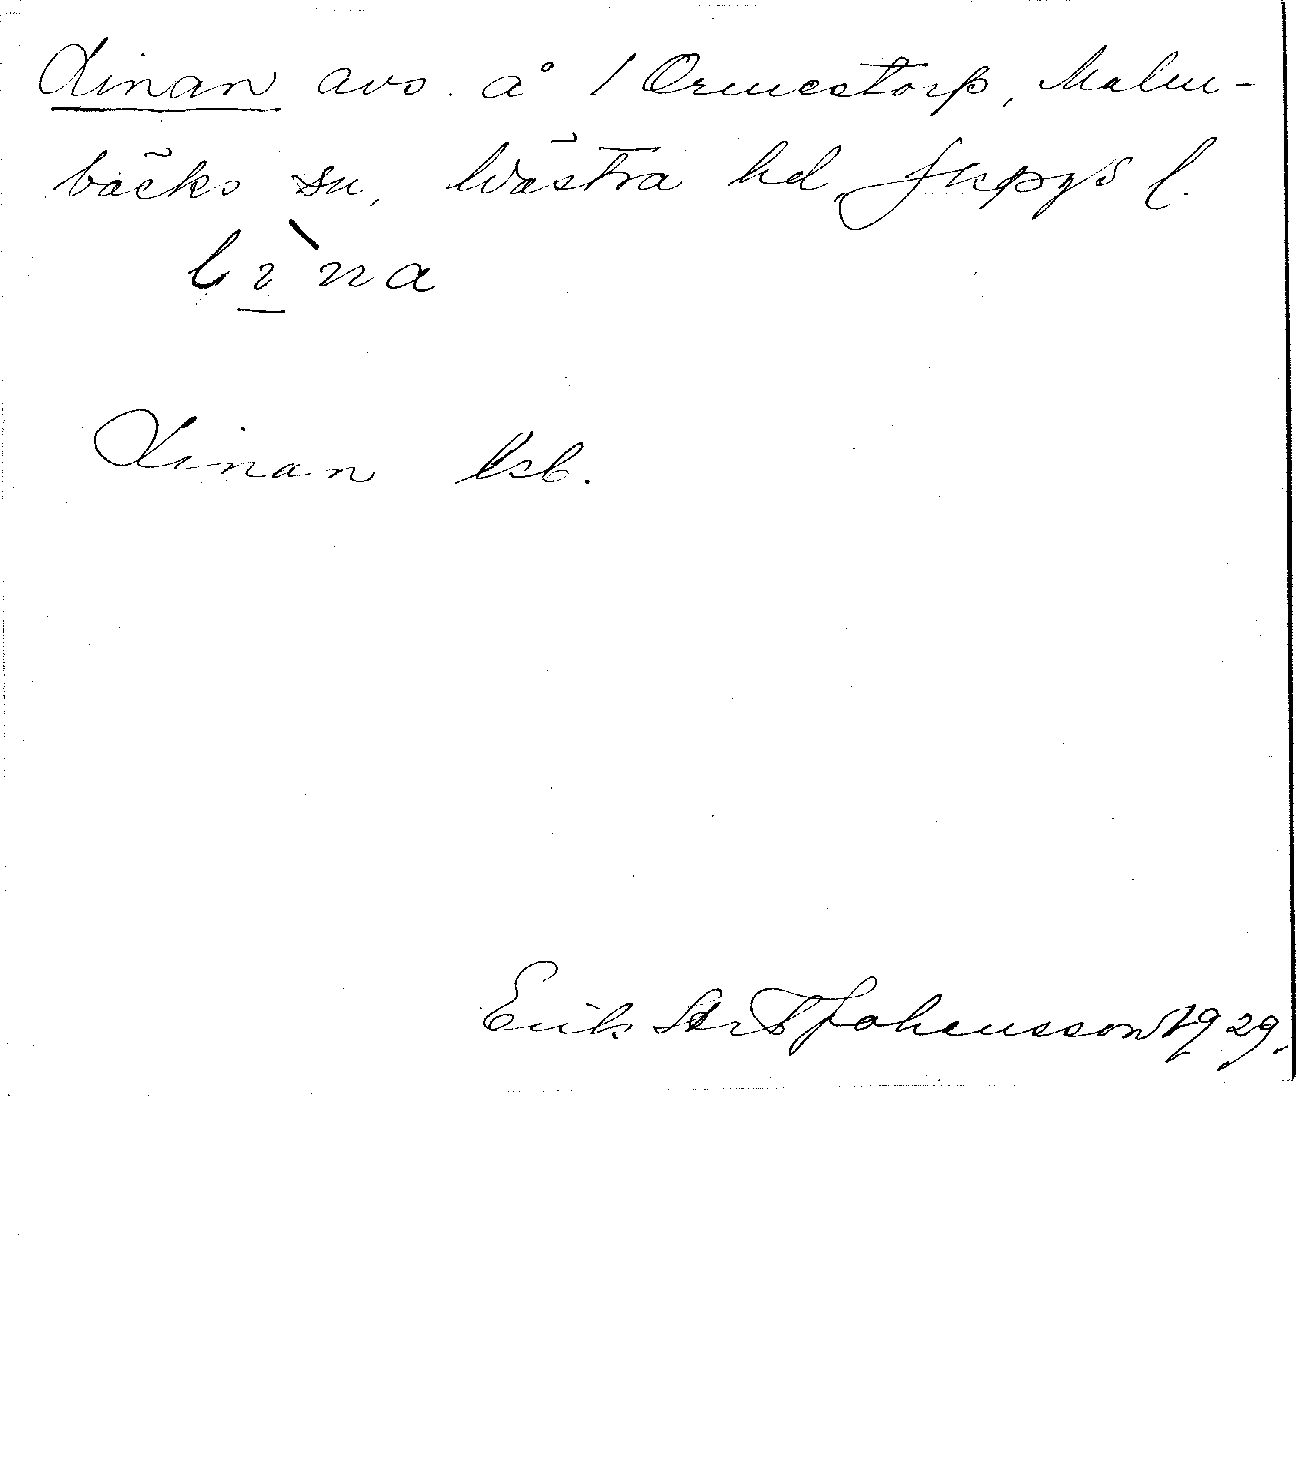 Linan avs. å 1 Ormestorp, Malm-
bäcks sn, Västra hd, Jkpgs l.
lìna
Linan lsb.
Erik Johansson 1929.